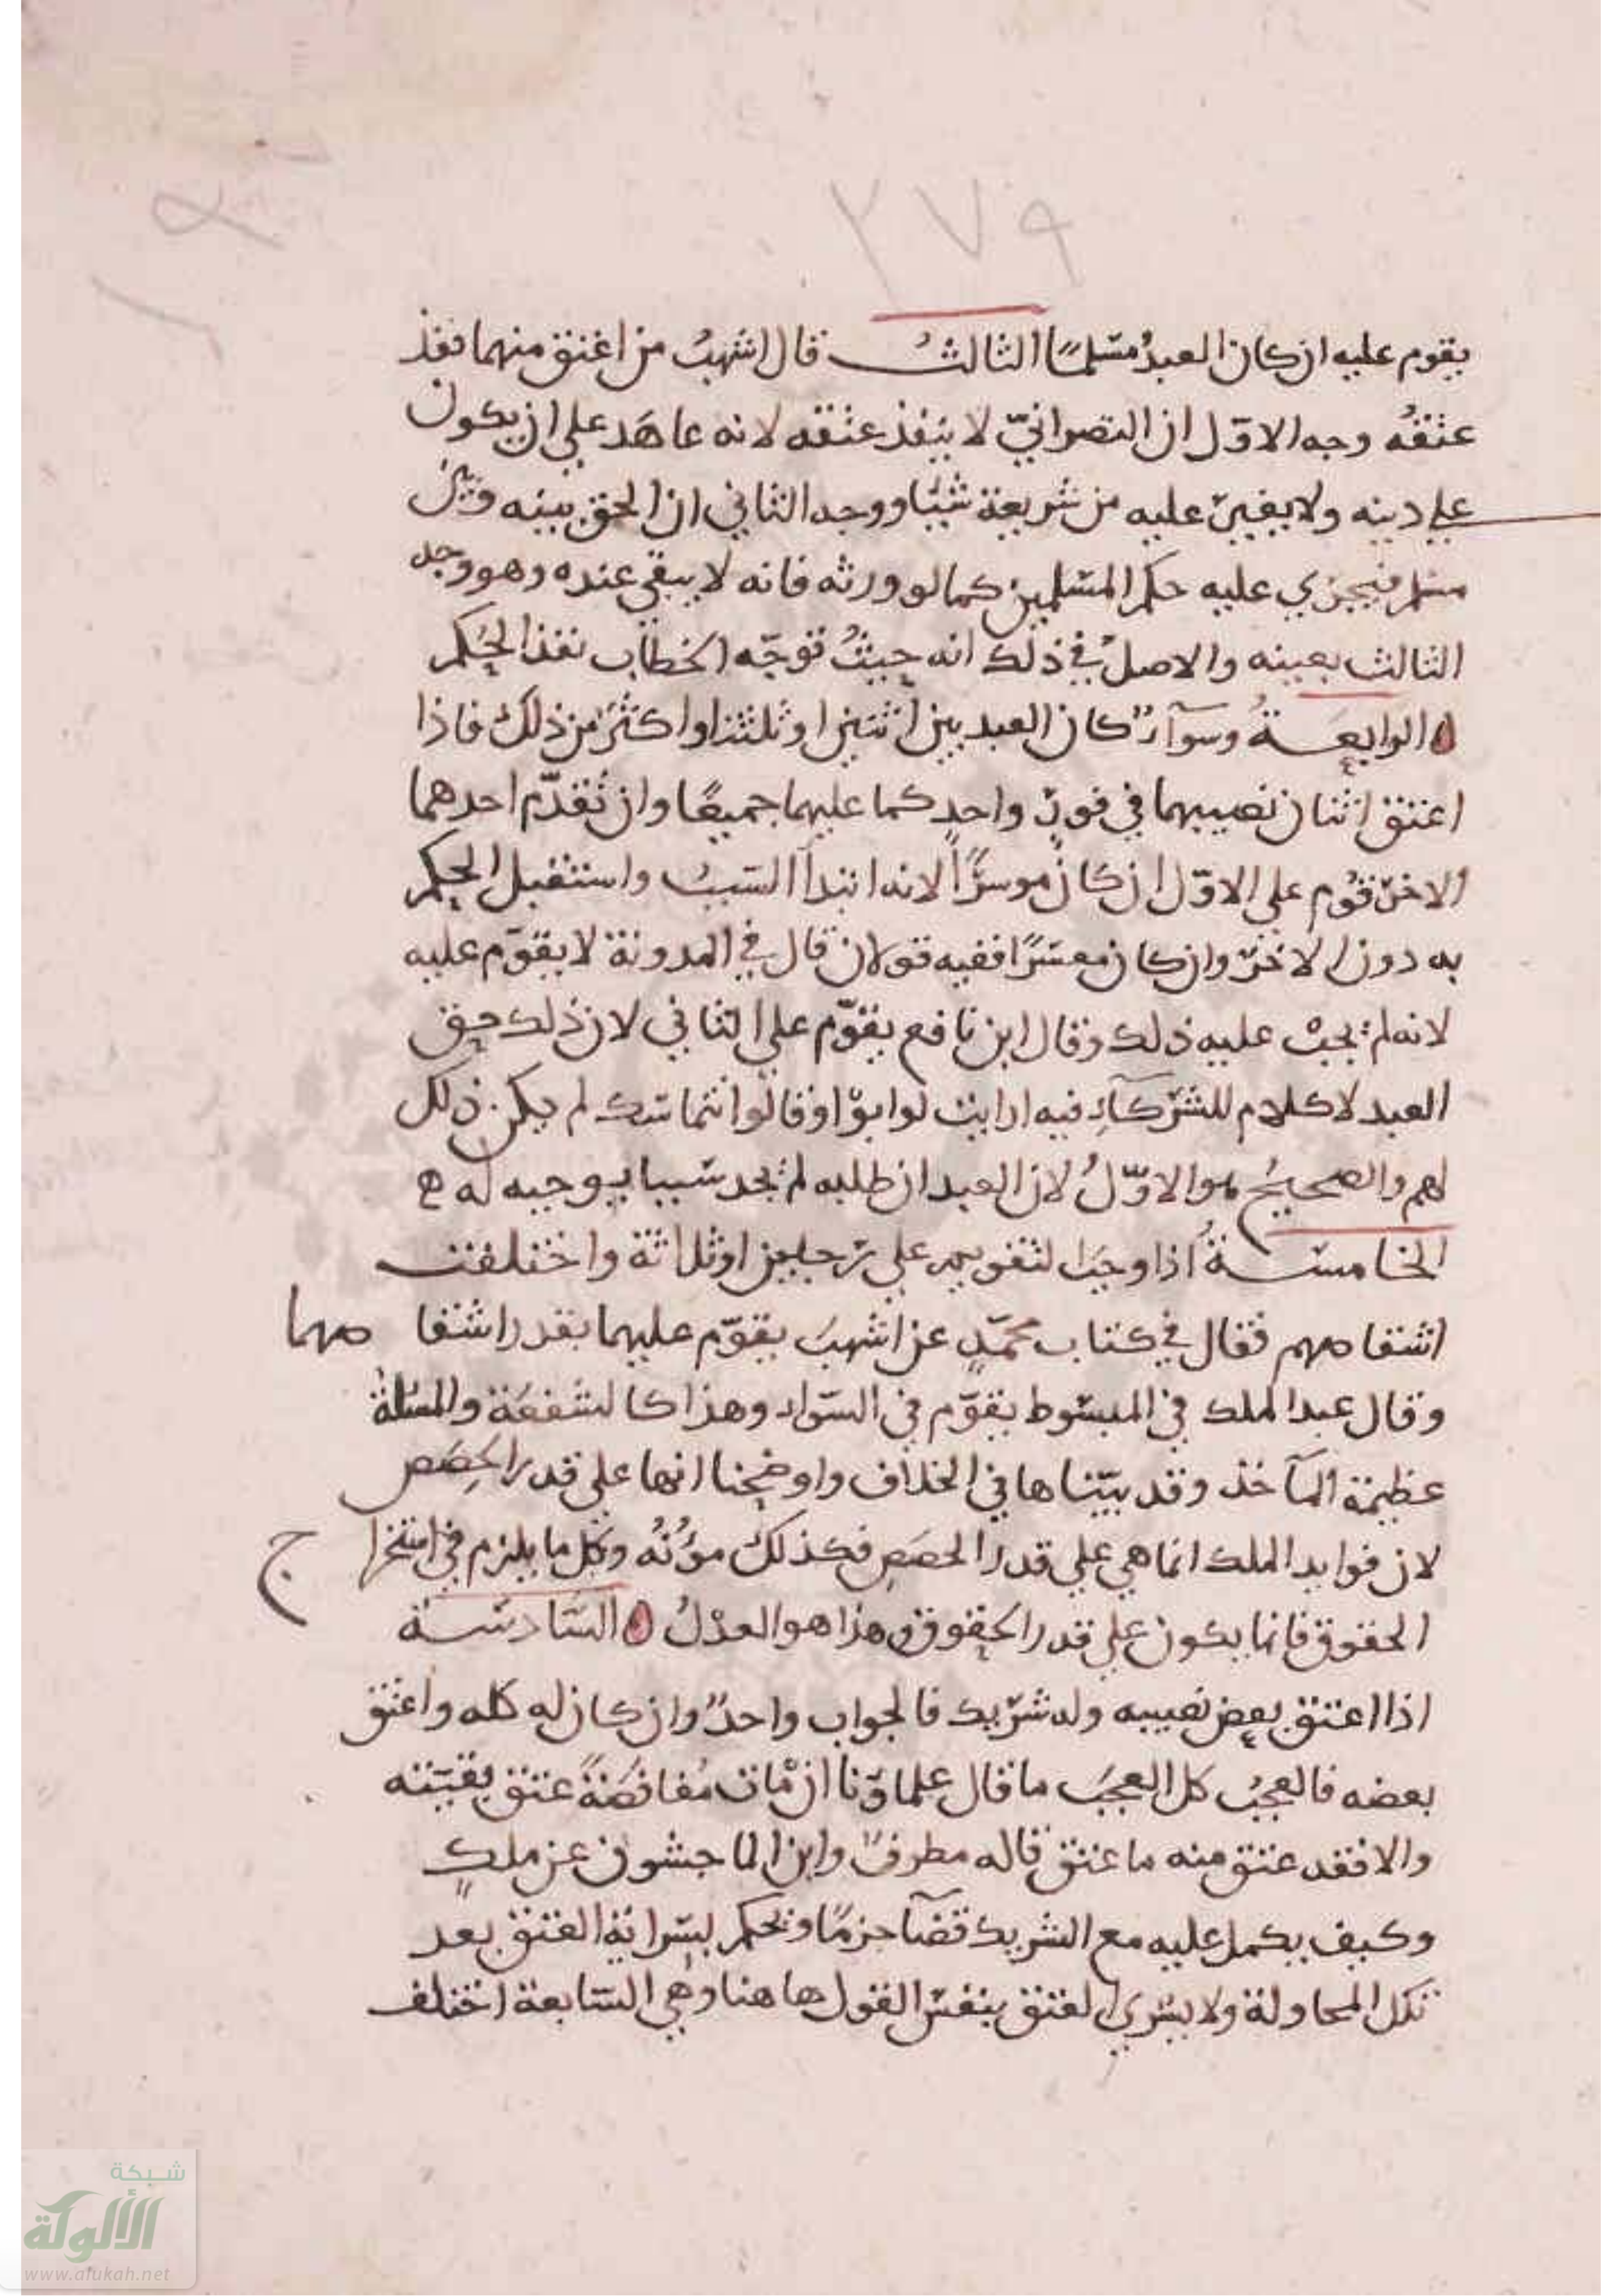 ٢٧٩
يقوم عليه ان كان العبدُ مسلمًا الثالثُ قال اشهبُ من اعتق منهما نفذ
عتقُه وجه الاوّل ان النصرانيّ لا ينفذ عتقه لانه عاهَد علي ان يكون
علي دينه ولا يغيّر عليه من شريعة شيّا ووجه الثاني ان الحق بينه وبين
مسلم فيجري عليه حكم المسلمين كما لو ورثه فانه لا يبقي عنده وهو وجه
الثالث بعينه والاصلُ في ذلك انه حيثُ توجّه الخطاب نفذ الحُكم
الرابعةُ وسوآءٌ كان العبد بين اثنين او ثلثة او اكثرَ من ذلك فاذا
اعتق اثنان نصيبهما في فورٍ واحدٍ كما عليهما جميعًا وان تقدّم احدهما
الاخر قُوّم علي الاوّل ان كان موسرًا لانه ابتدأ السببُ واستقبل الحكم
به دون الاخر وان كان معسرًا ففيه قولان قال في المدونة لا يقوّم عليه
لانه لم يجبْ عليه ذلك وقال ابن نافع يقوّم علي الثاني لان ذلك حق
العبد لا كلام للشركآءِ فيه ارايت لو ابوْا او قالوا نتماسك لم يكن ذلك
لهم والصحيحُ هو الاوّلُ لان العبد ان طلبه لم يجد سببا يوجبه له ه
الخامسةُ اذا وجبَ التقويم علي رجلين او ثلاثة واختلفت
اشقاصهم فقال في كتاب محمّدٍ عن اشهبَ يقوّم عليهما بقدر اشقاصهما
وقال عبد الملك في المبسوط يقوّم في السّواء وهذا كالشفعَة والمسئلةُ
عظيمة المآخذ وقد بيّناها في الخلاف واوضحنا انها علي قدر الحِصَص
لان فوايد الملك انما هي علي قدر الحصَصِ فكذلك موُنُه وكل ما يلزم في استخراج
الحقوق فانما يكون علي قدر الحقوق وهذا هو العدْلُ السّادسة
اذا اعتق بعض نصيبه وله شريك فالجواب واحدٌ وان كان له كله واعتق
بعضه فالعجبُ كل العجَب ما قال علماؤنا ان مات مُفافصَةً عتق بقيّته
والا فقد عتق منه ما عتق قاله مطرفٌ وابن الماجشون عن ملكٍ
وكيف يكمل عليه مع الشريك قضآ جزمًا ونحكم بسراية العتق بعد
تلك المحاولة ولا يسري العتق بنفس القول هاهنا وهي السّابعة اختلف
شبكة
الألوكة
www.alukah.net